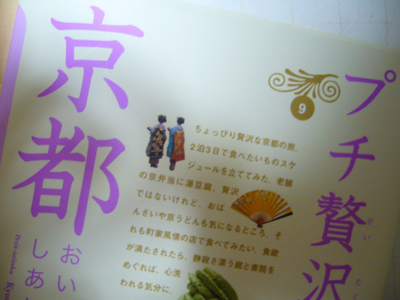 プチ贅沢
ぜい
たく
9
京都
おい
しあ
ちょっぴり贅沢な京都の旅。
2泊3日で食べたいものスケ
ジュールを立ててみた。老舗
の京弁当に湯豆腐、贅沢
ではないけれど、おば
んざいや京うどんも気になるところ。そ
れも町家風情の店で食べてみたい。食欲
が満たされたら、静寂さ漂う庭と書院を
めぐれば、心洗
われる気分に。